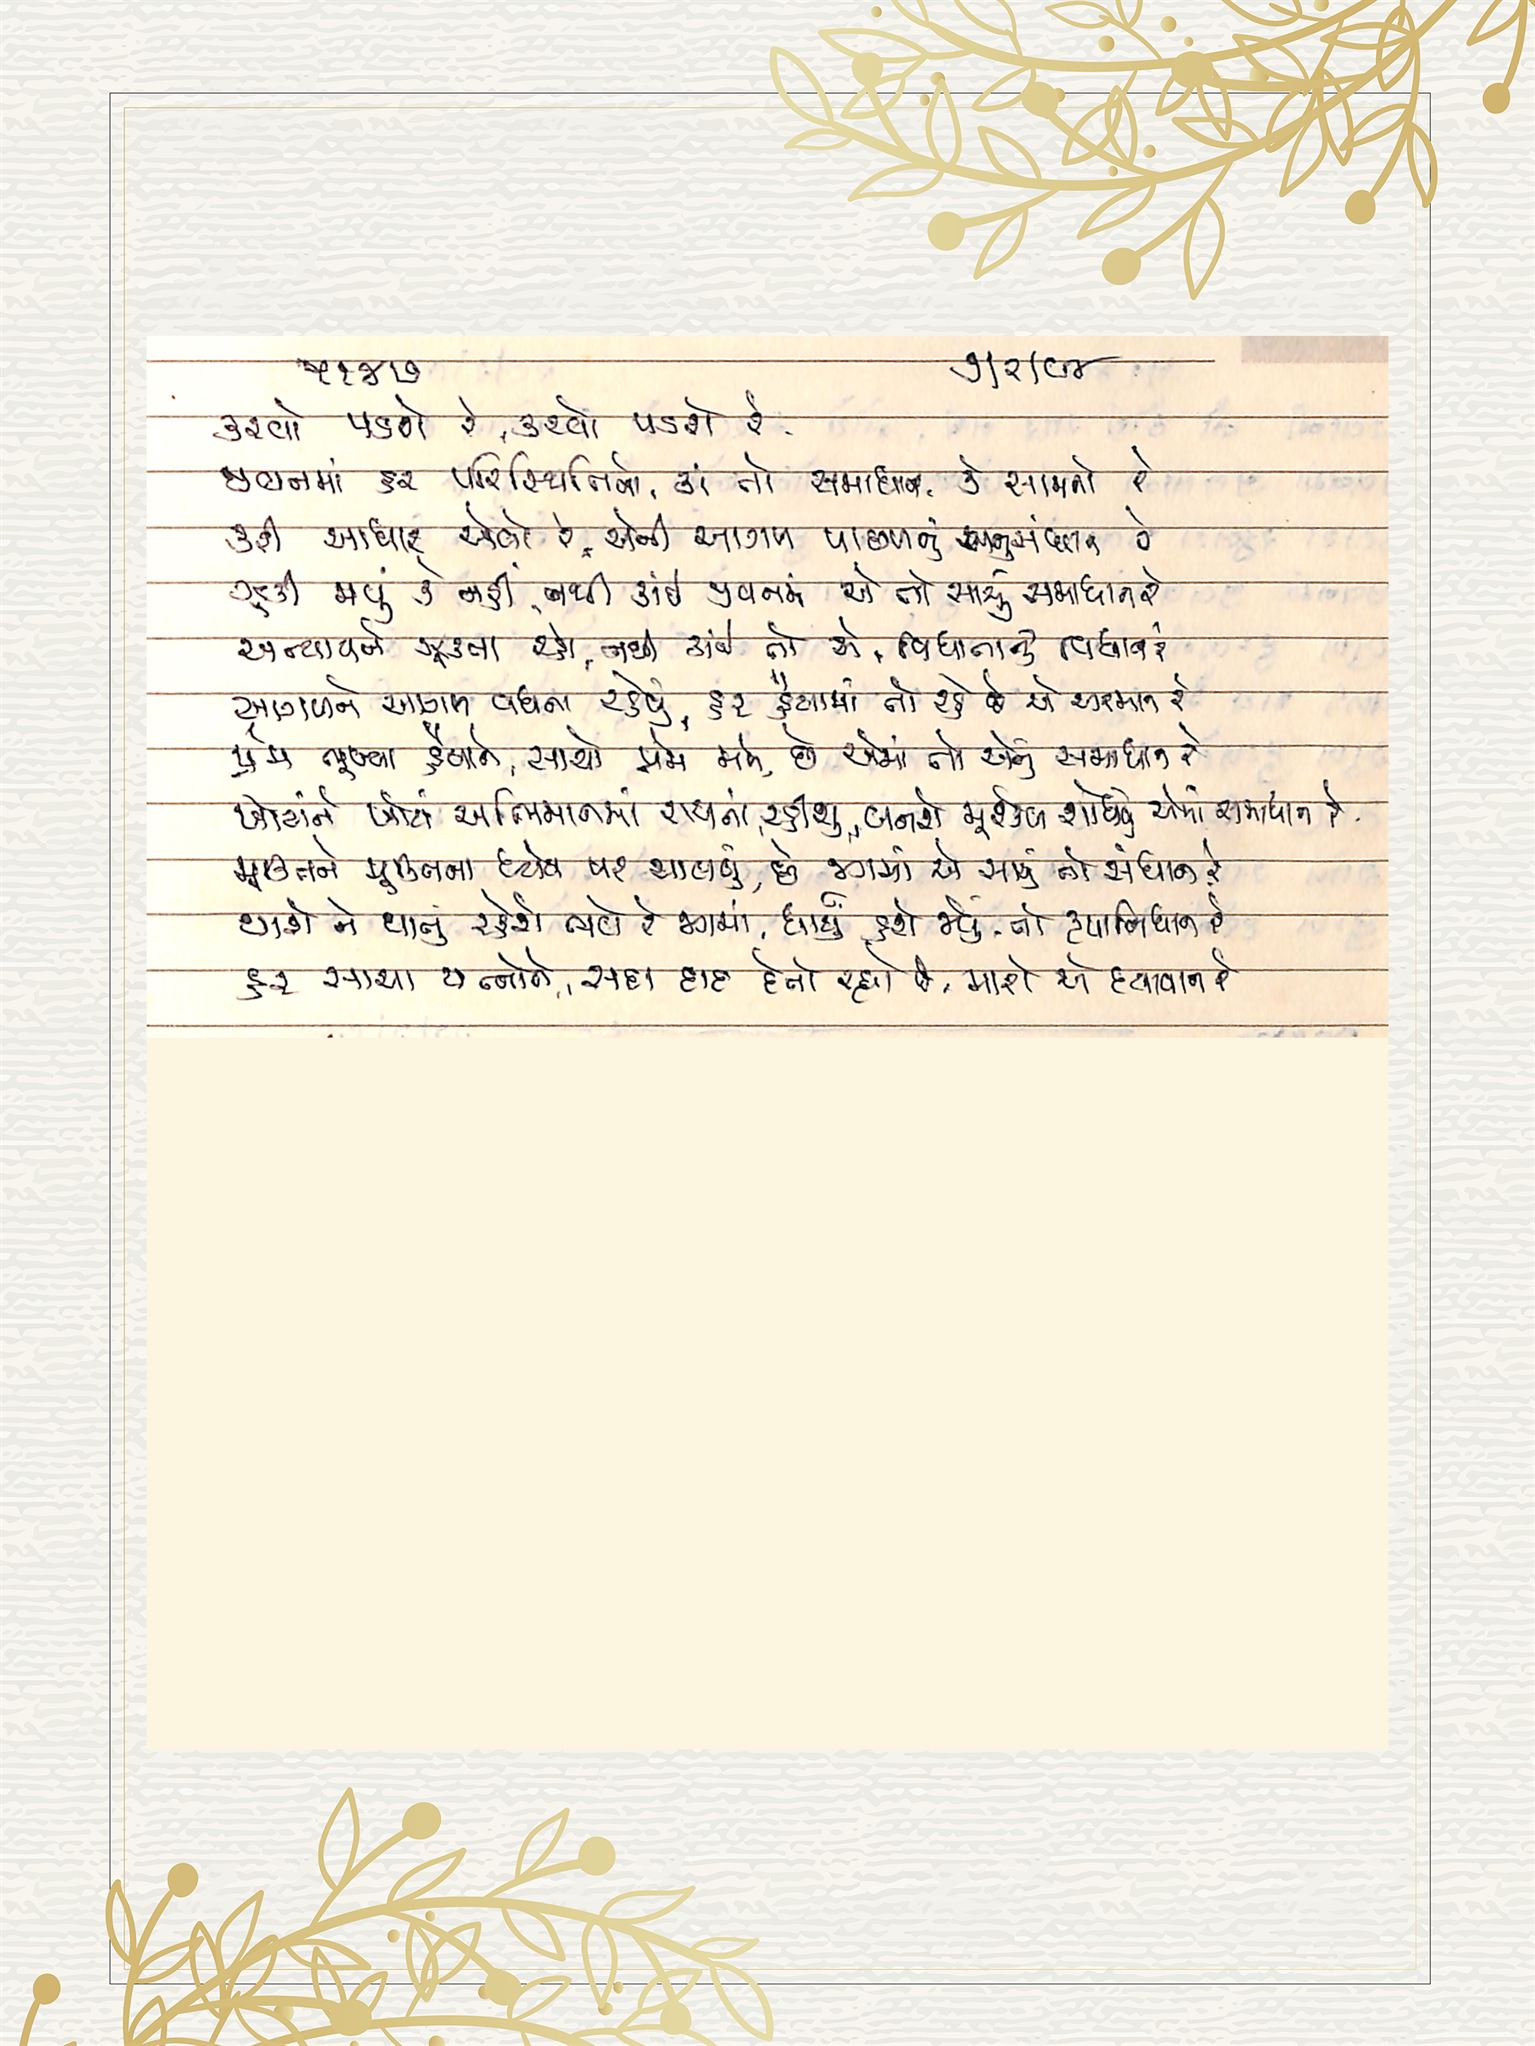 ૫૧૪૭ ૭/૨/૯૪
કરવો પડશે રે, કરવો પડશે રે.
જીવનમાં હર પરિસ્થિતિનો, કાં તો સમાધાન, કે સામનો રે
કરી આધાર એનો રે, એની આગળ પાછળનું અનુસંધાન રે
ઝૂકી જવું કે નહીં, નથી કાંઈ જીવનમાં એ તો સાચું સમાધાન રે
અન્યાયને ઝૂકતા રહો, નથી કાંઈ તો એ, વિધાતાનું વિધાન રે
આગળને આગળ વધતા રહેવું, હર હૈયામાં તો રહે છે એ અરમાન રે
પ્રેમ ભૂખ્યા હૈયાને, સાચો પ્રેમ મળે, છે એમાં તો એનું સમાધાન રે
ખોટાંને ખોટાં અભિમાનમાં રાચતાં રહીશું, બનશે મુશ્કેલ શોધવું એમાં સમાધાન રે.
મૂકીને પૂર્ણતાના ધ્યેય પર ચાલવું, છે જગમાં એ સાચું તો સંધાન રે
થાશે ને થાતું રહેશે ભલે રે જગમાં, ધાર્યું હશે જેવું તો કૃપાનિધાન રે
હર સાચા યત્નોને, સદા દાદ દેતો રહ્યો છે, મારો એ દયાવાન રે